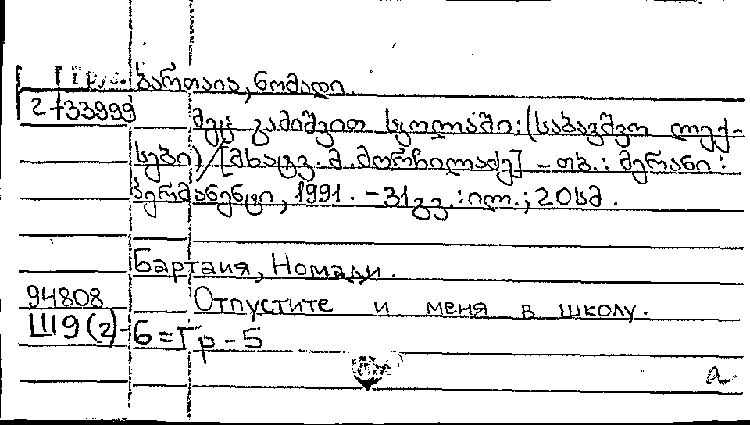 Груз. ბართაია, ნომადი.
2-33999
მეც გამიშვით სკოლაში: (საბავშვო ლექ-
სები) / [მხატვ. მ. მორჩილაძე] - თბ.: მერანი:
პერმანენტი, 1991. - 31 გვ. : ილ.; 20 სმ.
Бартаия, Номади.
94808 Отпустите и меня в школу.
Ш9(2)-6=Гр-5
а